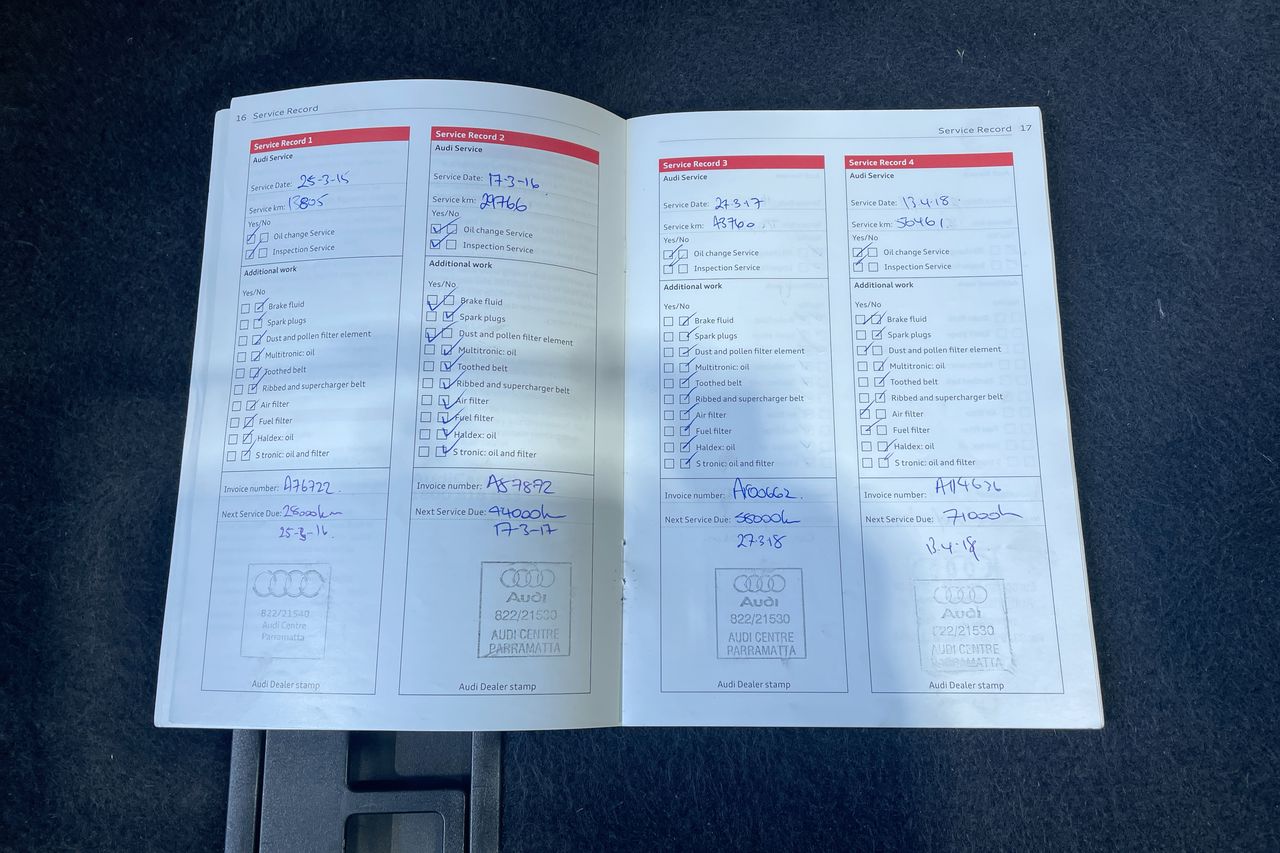 16 Service Record
Service Record 1
Audi Service
Service Date: 25-3-15
Service km: 13805
Yes/No
Oil change Service
Inspection Service
Additional work
Yes/No
Brake fluid
Spark plugs
Dust and pollen filter element
Multitronic: oil
Toothed belt
Ribbed and supercharger belt
Air filter
Fuel filter
Haldex: oil
S tronic: oil and filter
Invoice number: A76722.
Next Service Due: 28000km
25-3-16.
822/21540
Audi Centre
Parramatta
Audi Dealer stamp
Service Record 2
Audi Service
Service Date: 17-3-16
Service km: 29766
Yes/No
Oil change Service
Inspection Service
Additional work
Yes/No
Brake fluid
Spark plugs
Dust and pollen filter element
Multitronic: oil
Toothed belt
Ribbed and supercharger belt
Air filter
Fuel filter
Haldex: oil
S tronic: oil and filter
Invoice number: A87892
Next Service Due: 44000km
17-3-17
Audi
822/21530
AUDI CENTRE
PARRAMATTA
Audi Dealer stamp
Service Record 17
Service Record 3
Audi Service
Service Date: 27.3.17
Service km: 43760
Yes/No
Oil change Service
Inspection Service
Additional work
Yes/No
Brake fluid
Spark plugs
Dust and pollen filter element
Multitronic: oil
Toothed belt
Ribbed and supercharger belt
Air filter
Fuel filter
Haldex: oil
S tronic: oil and filter
Invoice number: A100662.
Next Service Due: 58000km
27.3.18
Audi
822/21530
AUDI CENTRE
PARRAMATTA
Audi Dealer stamp
Service Record 4
Audi Service
Service Date: 13.4.18.
Service km: 56461.
Yes/No
Oil change Service
Inspection Service
Additional work
Yes/No
Brake fluid
Spark plugs
Dust and pollen filter element
Multitronic: oil
Toothed belt
Ribbed and supercharger belt
Air filter
Fuel filter
Haldex: oil
S tronic: oil and filter
Invoice number: A114636
Next Service Due: 71000km
13.4.19.
Audi
822/21530
AUDI CENTRE
PARRAMATTA
Audi Dealer stamp